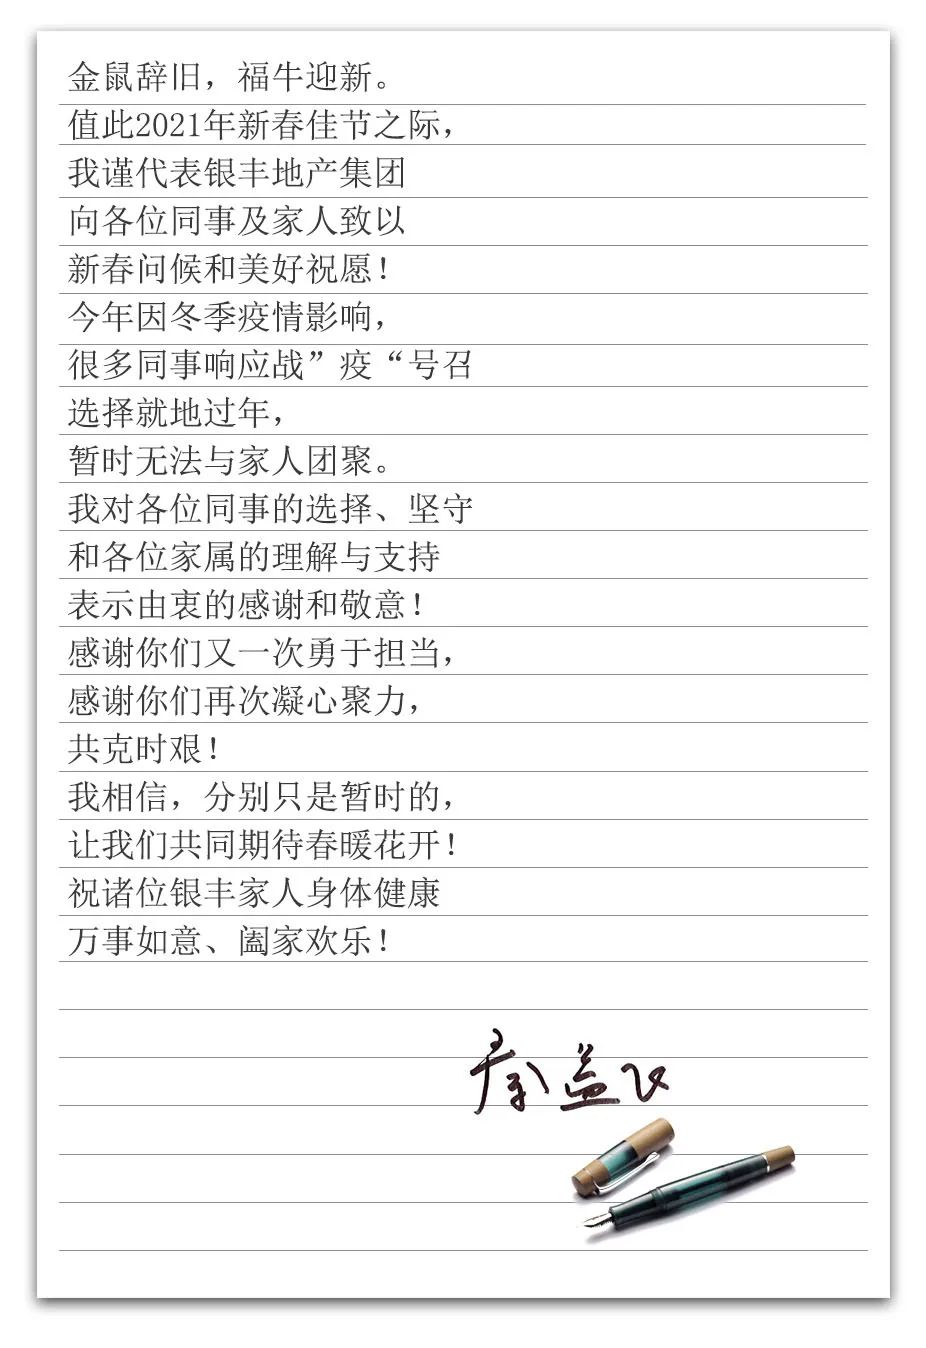 金鼠辞旧，福牛迎新。
值此2021年新春佳节之际，
我谨代表银丰地产集团
向各位同事及家人致以
新春问候和美好祝愿！
今年因冬季疫情影响，
很多同事响应战”疫“号召
选择就地过年，
暂时无法与家人团聚。
我对各位同事的选择、坚守
和各位家属的理解与支持
表示由衷的感谢和敬意！
感谢你们又一次勇于担当，
感谢你们再次凝心聚力，
共克时艰！
我相信，分别只是暂时的，
让我们共同期待春暖花开！
祝诸位银丰家人身体健康
万事如意、阖家欢乐！